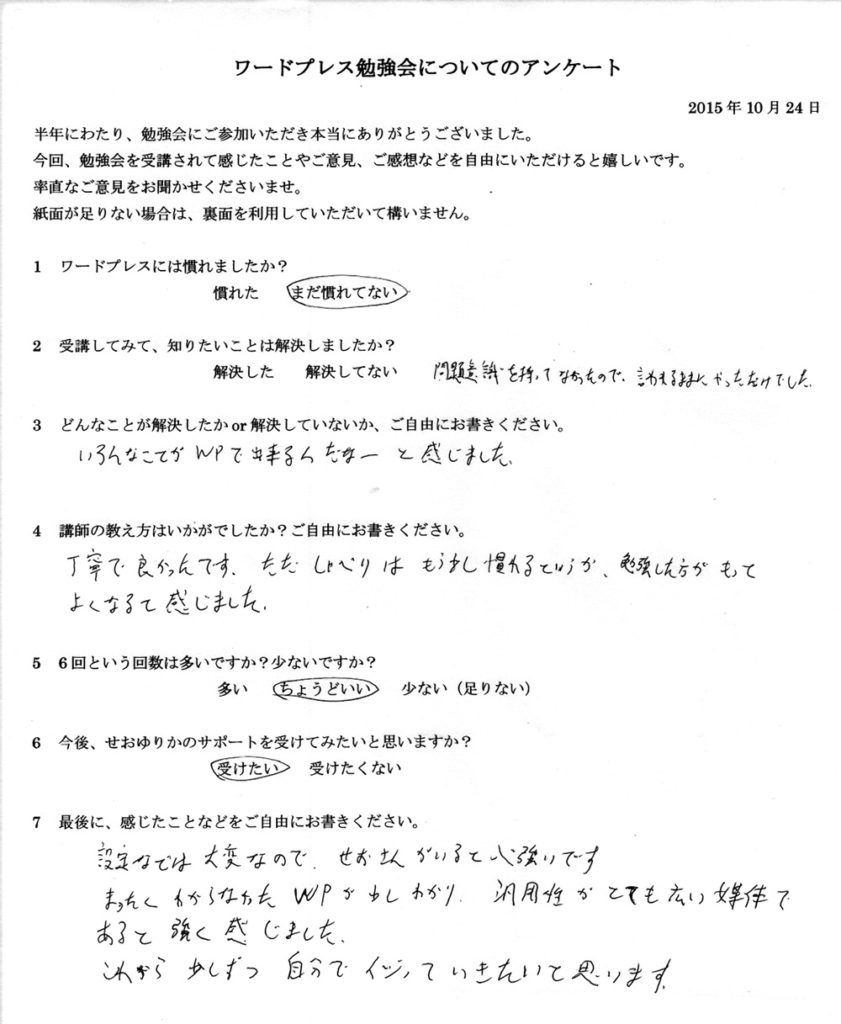 ワードプレス勉強会についてのアンケート
2015年10月24日
半年にわたり、勉強会にご参加いただき本当にありがとうございました。
今回、勉強会を受講されて感じたことやご意見、ご感想などを自由にいただけると嬉しいです。
率直なご意見をお聞かせくださいませ。
紙面が足りない場合は、裏面を利用していただいて構いません。
1 ワードプレスには慣れましたか？
慣れた まだ慣れてない
2 受講してみて、知りたいことは解決しましたか？
解決した 解決してない 問題意識を持ってなかったので、言われるままにやっただけでした。
3 どんなことが解決したか or 解決していないか、ご自由にお書きください。
いろんなことがWPで出来るんだなーと感じました。
4 講師の教え方はいかがでしたか？ご自由にお書きください。
丁寧で良かったです。ただしゃべりはもう少し慣れるというか、勉強した方がもって
よくなると感じました。
5 6回という回数は多いですか？少ないですか？
多い ちょうどいい 少ない（足りない）
6 今後、せおゆりかのサポートを受けてみたいと思いますか？
受けたい 受けたくない
7 最後に、感じたことなどをご自由にお書きください。
設定などは大変なので、せおさんがいると心強いです
まったくわからなかったWPが少しわかり、汎用性がとても広い媒体で
あると強く感じました。
これから少しずつ自分でイジっていきたいと思います。